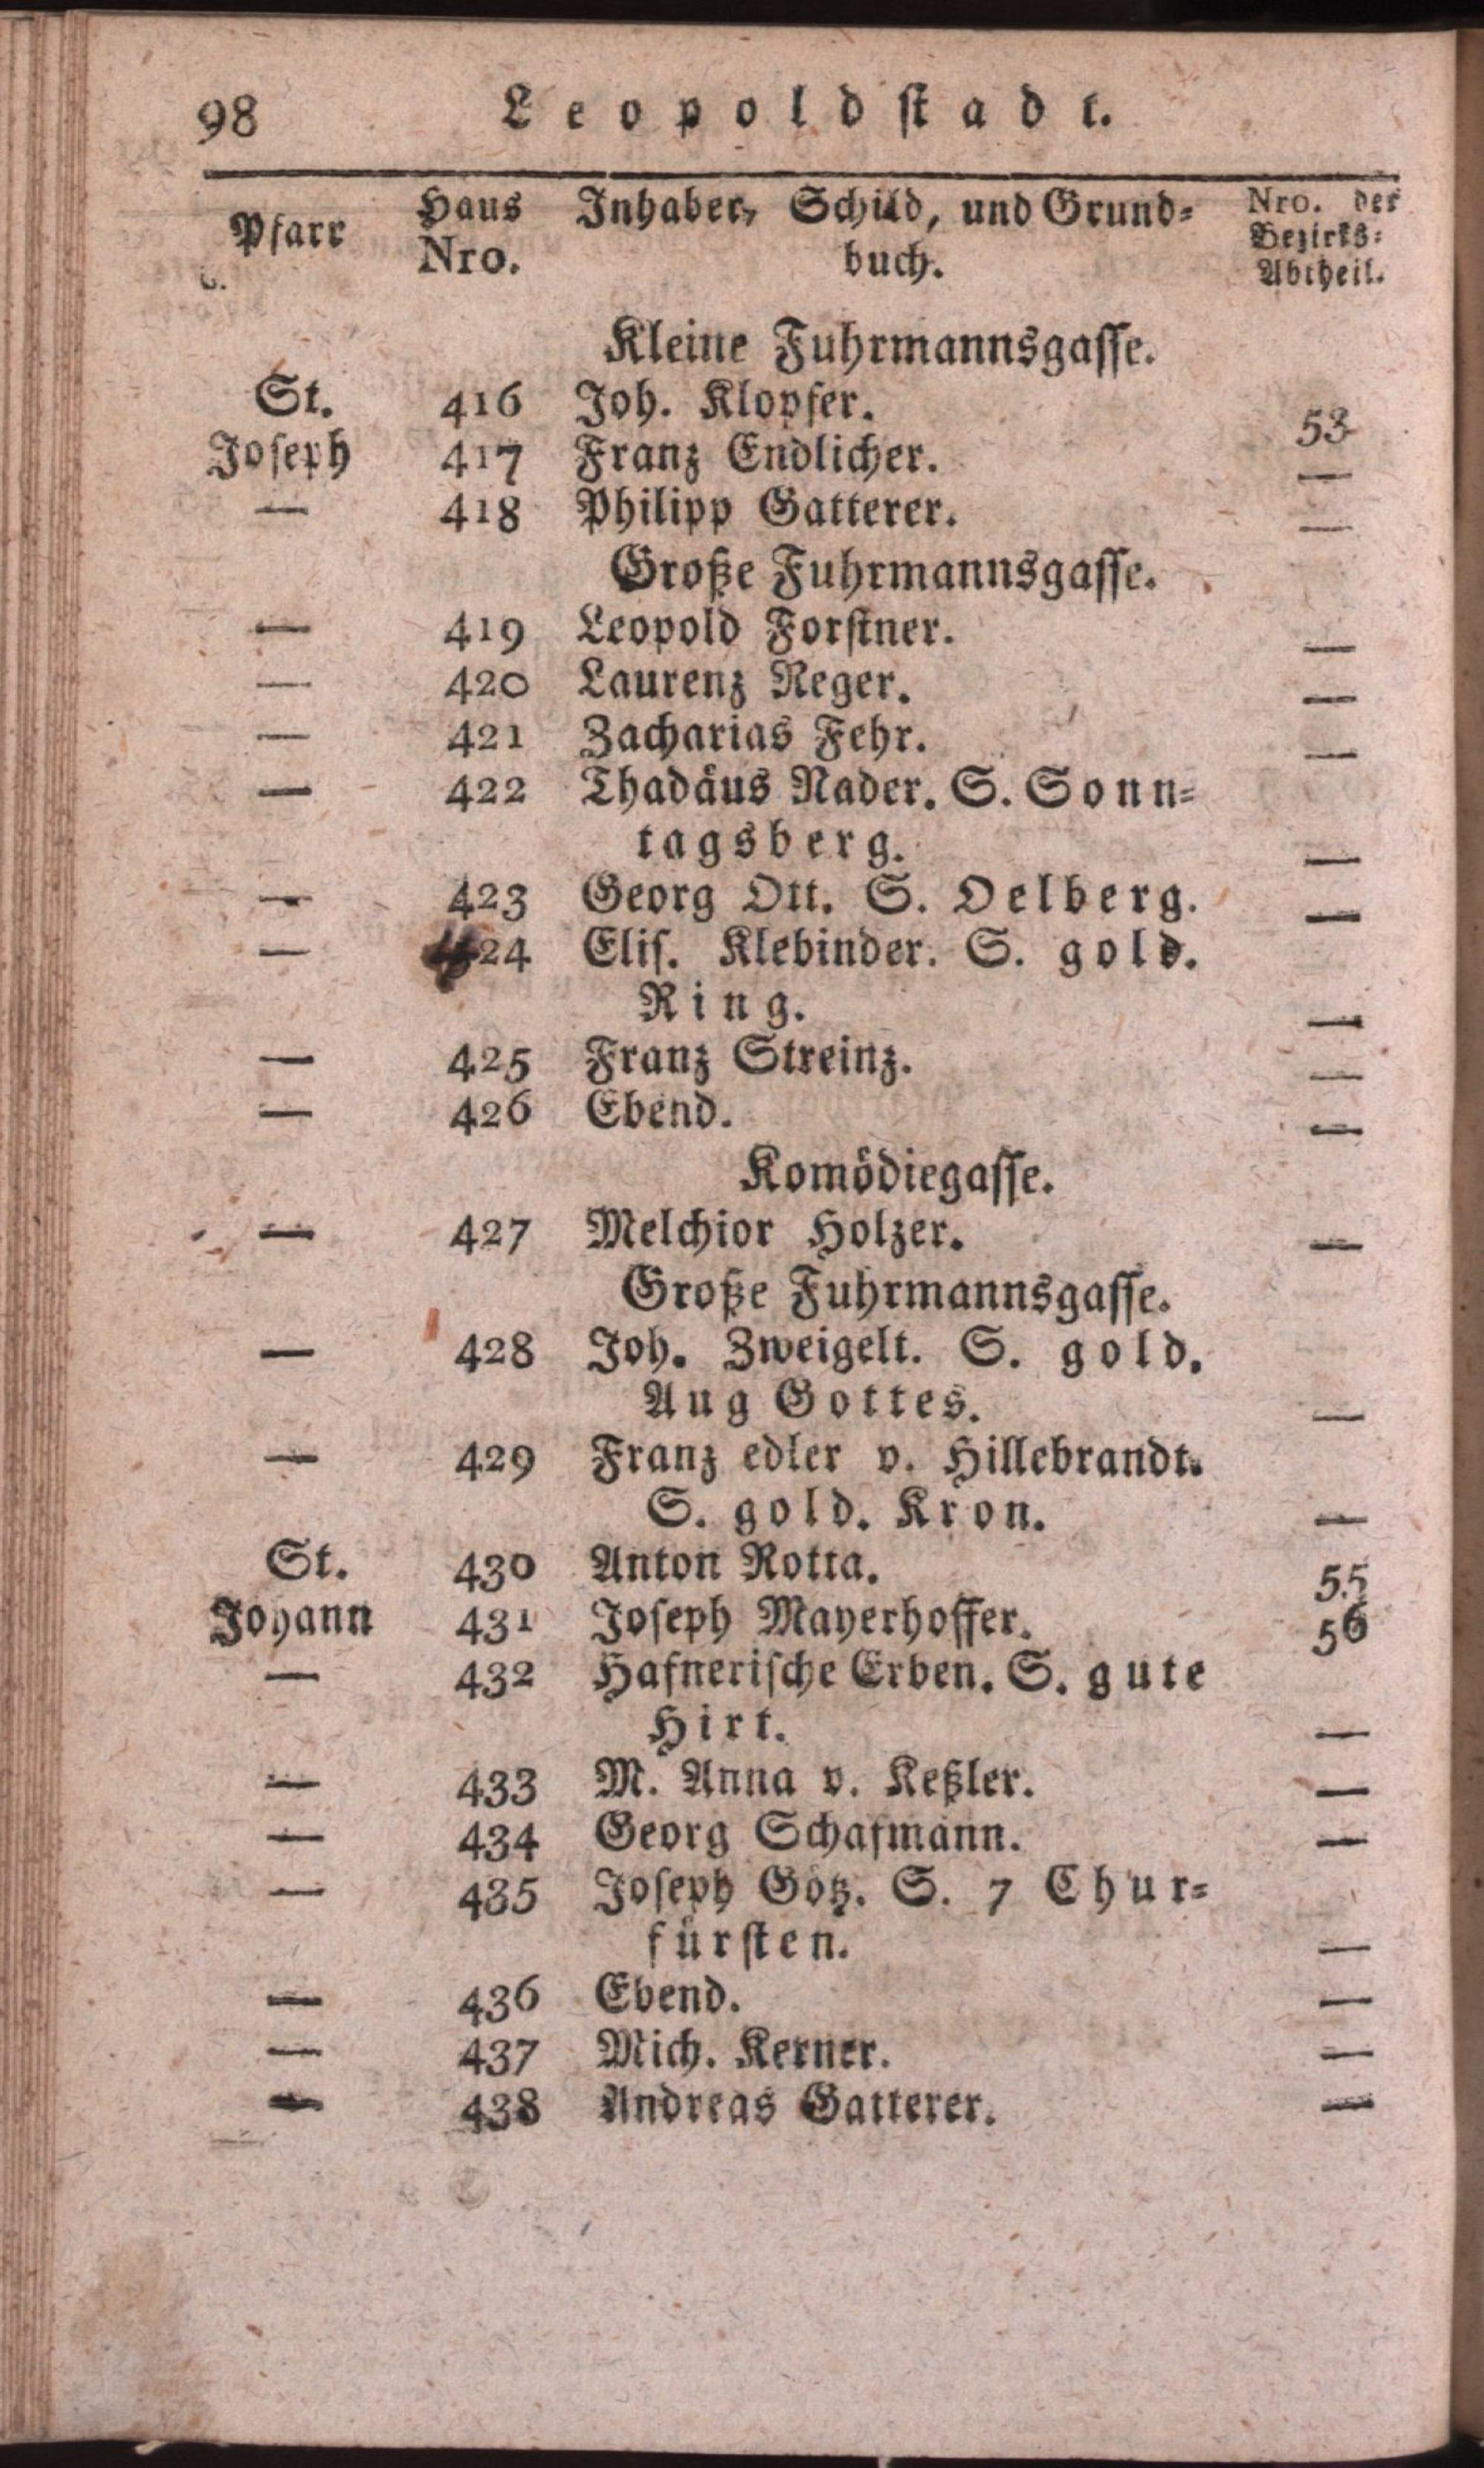 98 Leopoldstadt.
Pfarr Haus Nro. Inhaber, Schild, und Grund-
buch. Nro. der Bezirks-Abtheil.
Kleine Fuhrmannsgasse.
St. 416 Joh. Klopfer. 53
Joseph 417 Franz Endlicher. —
— 418 Philipp Gatterer. —
Große Fuhrmannsgasse.
— 419 Leopold Forstner. —
— 420 Laurenz Reger. —
— 421 Zacharias Fehr. —
— 422 Thadäus Nader. S. Sonn-
tagsberg. —
— 423 Georg Ott. S. Oelberg. —
— 424 Elis. Klebinder. S. gold.
Ring. —
— 425 Franz Streinz. —
— 426 Ebend. —
Komödiegasse.
— 427 Melchior Holzer. —
Große Fuhrmannsgasse.
— 428 Joh. Zweigelt. S. gold.
Aug Gottes. —
— 429 Franz edler v. Hillebrandt.
S. gold. Kron. —
St. 430 Anton Rotta. 55
Johann 431 Joseph Mayerhoffer. 56
— 432 Hafnerische Erben. S. gute
Hirt. —
— 433 M. Anna v. Keßler. —
— 434 Georg Schafmann. —
— 435 Joseph Götz. S. 7 Chur-
fürsten. —
— 436 Ebend. —
— 437 Mich. Kerner. —
— 438 Andreas Gatterer. —